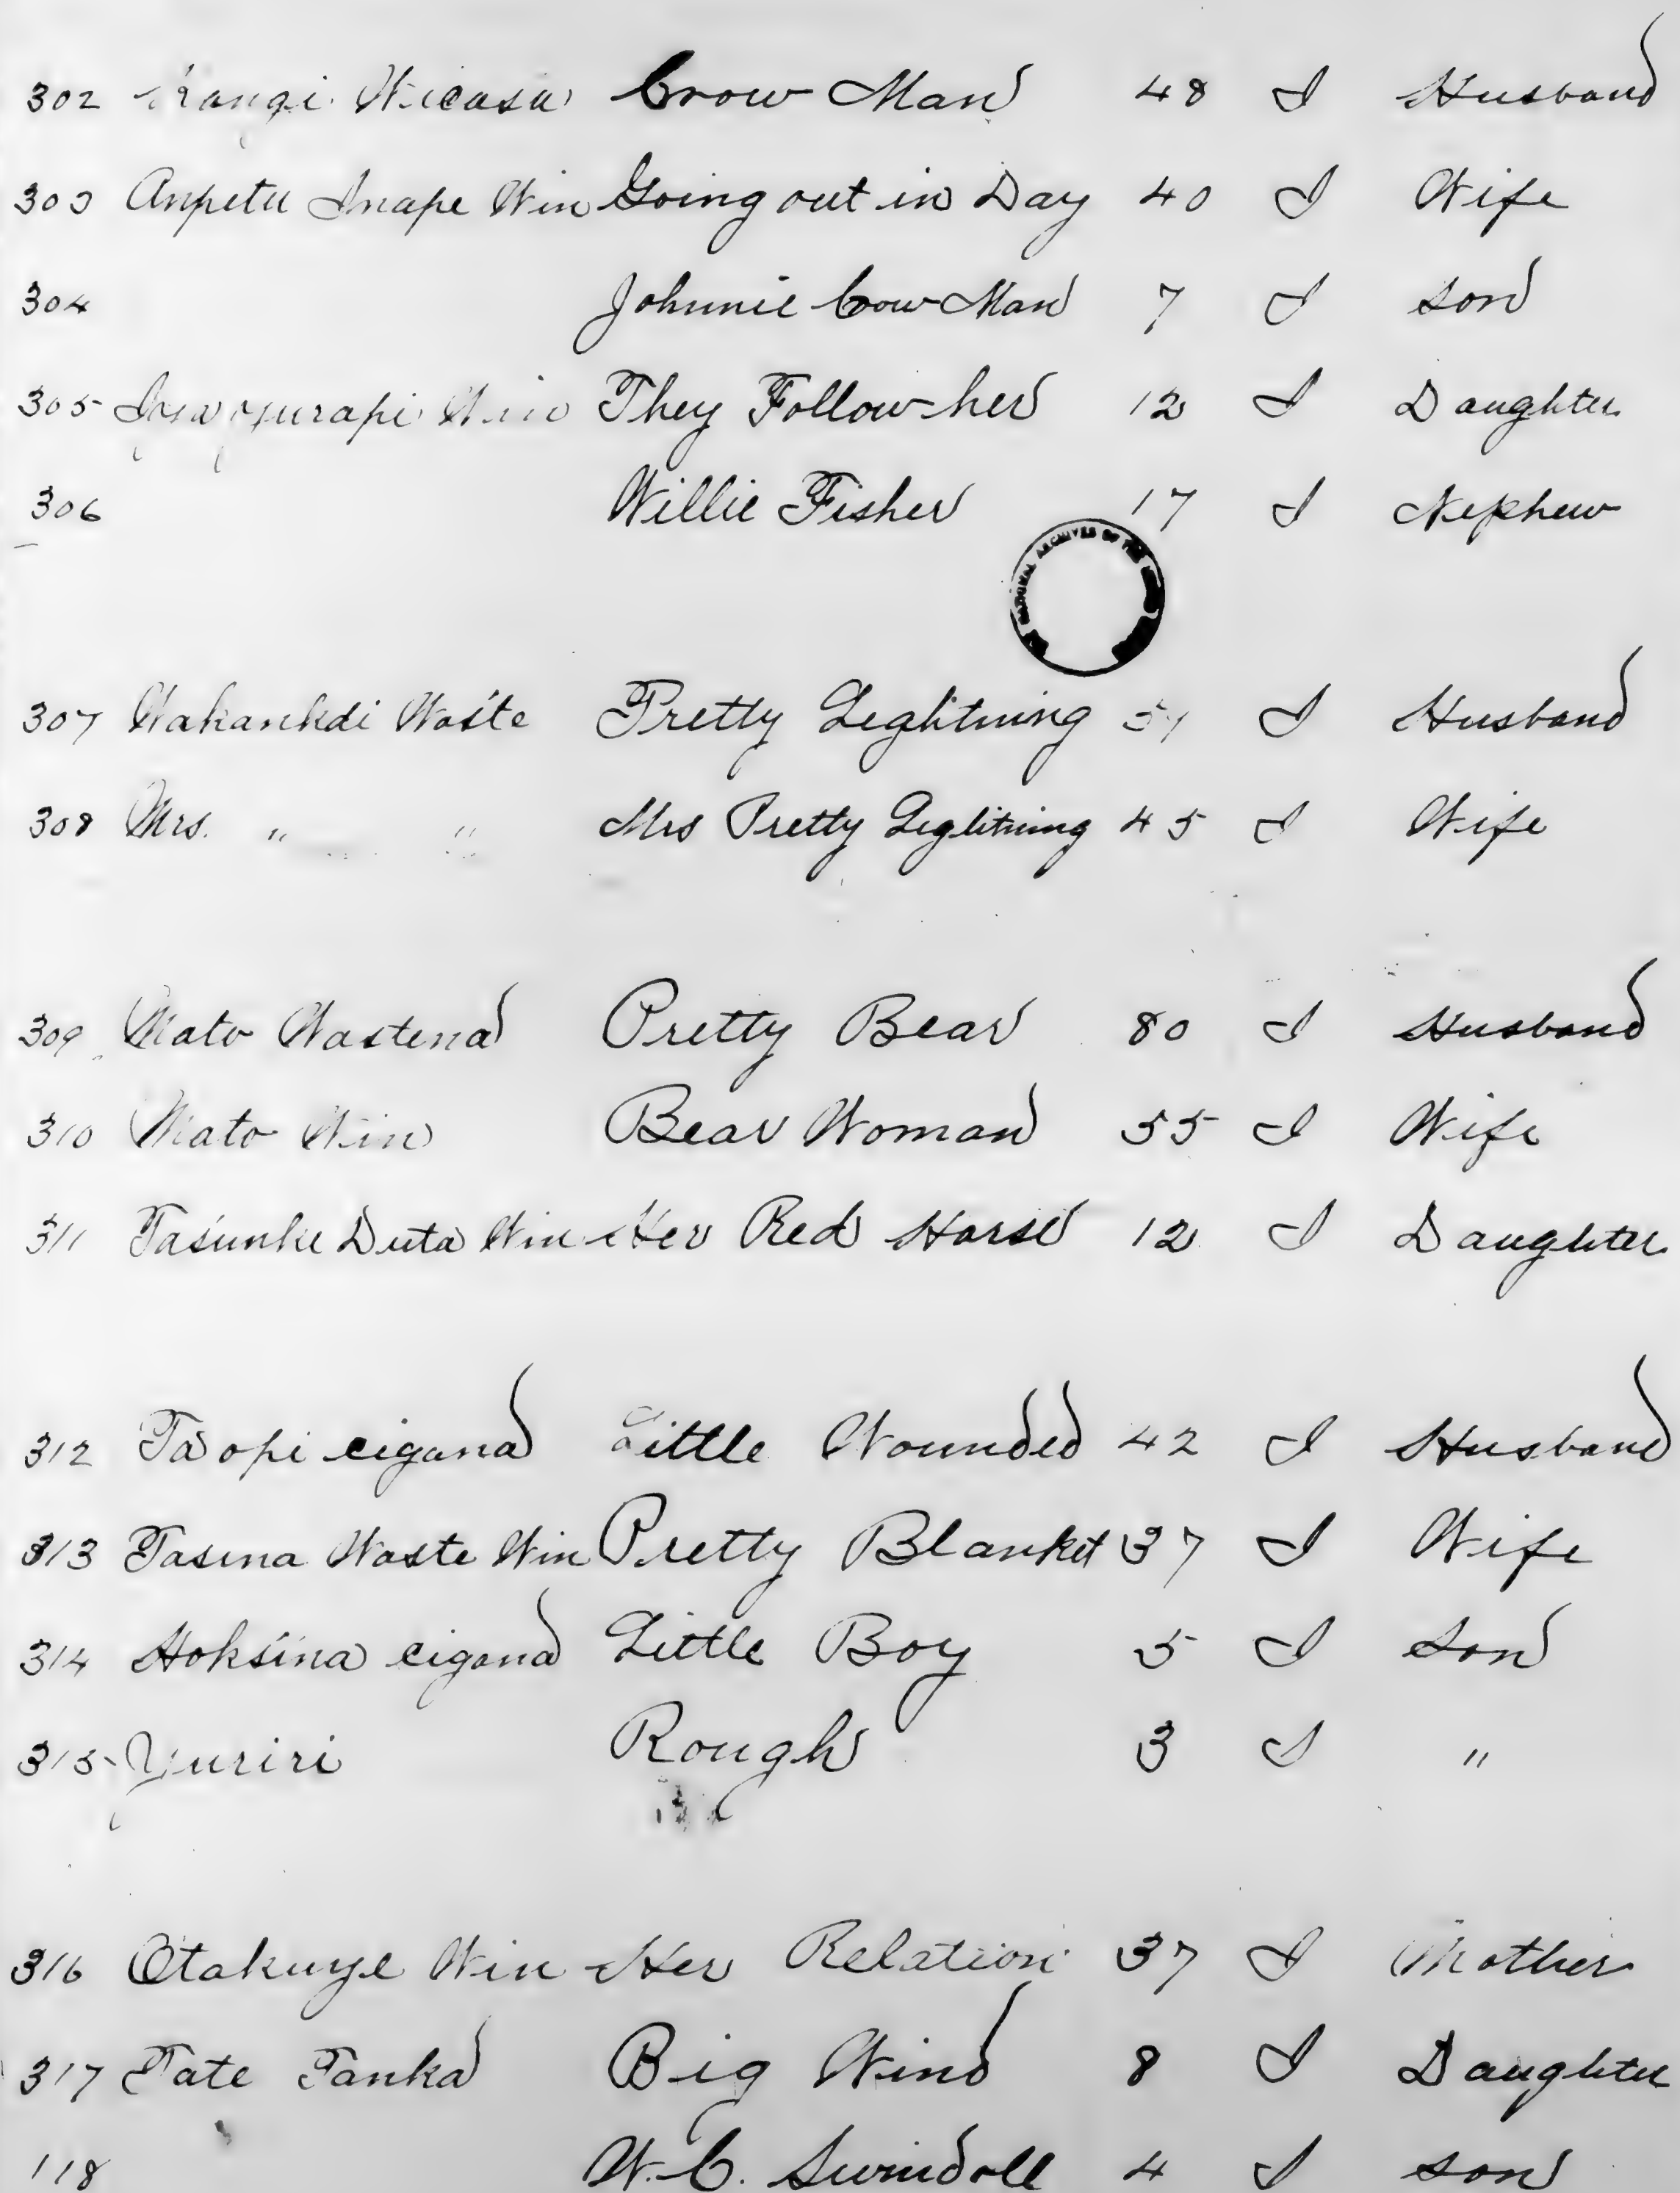 302 Kangi Wicasa Crow Man 48 I Husband
303 Anpetu Inape Win Going out in Day 40 I Wife
304 Johnnie Crow Man 7 I Son
305 Win They Follow her 12 I Daughter
306 Willie Fisher 17 I Nephew
NATIONAL ARCHIVES OF THE
307 Wakankdi Waste Pretty Lightning I Husband
308 Mrs. " " Mrs Pretty Lightning 45 I Wife
309 Mato Wastena Pretty Bear 80 I Husband
310 Mato Win Bear Woman 55 I Wife
311 Tasunke Duta Win Her Red Horse 12 I Daughter
312 Taopi cigana Little Wounded 42 I Husband
313 Tasina Waste Win Pretty Blanket 37 I Wife
314 Hoksina cigana Little Boy 5 I Son
315 Yuriri Rough 3 I "
316 Otakuye Win Her Relation 37 I Mother
317 Tate Tanka Big Wind 8 I Daughter
118 W. C. Swindoll 4 I Son